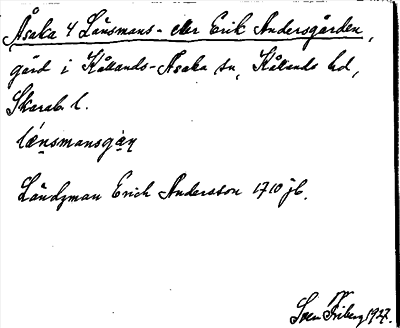 Åsaka 4 Länsmans- eller Erik Andersgården,
gård i Kållands-Åsaka sn, Kållands hd,
Skarab. l.
lænsmansga̤n
Ländzman Erich Andersson 1710 jb.
Sven Friberg 1927.